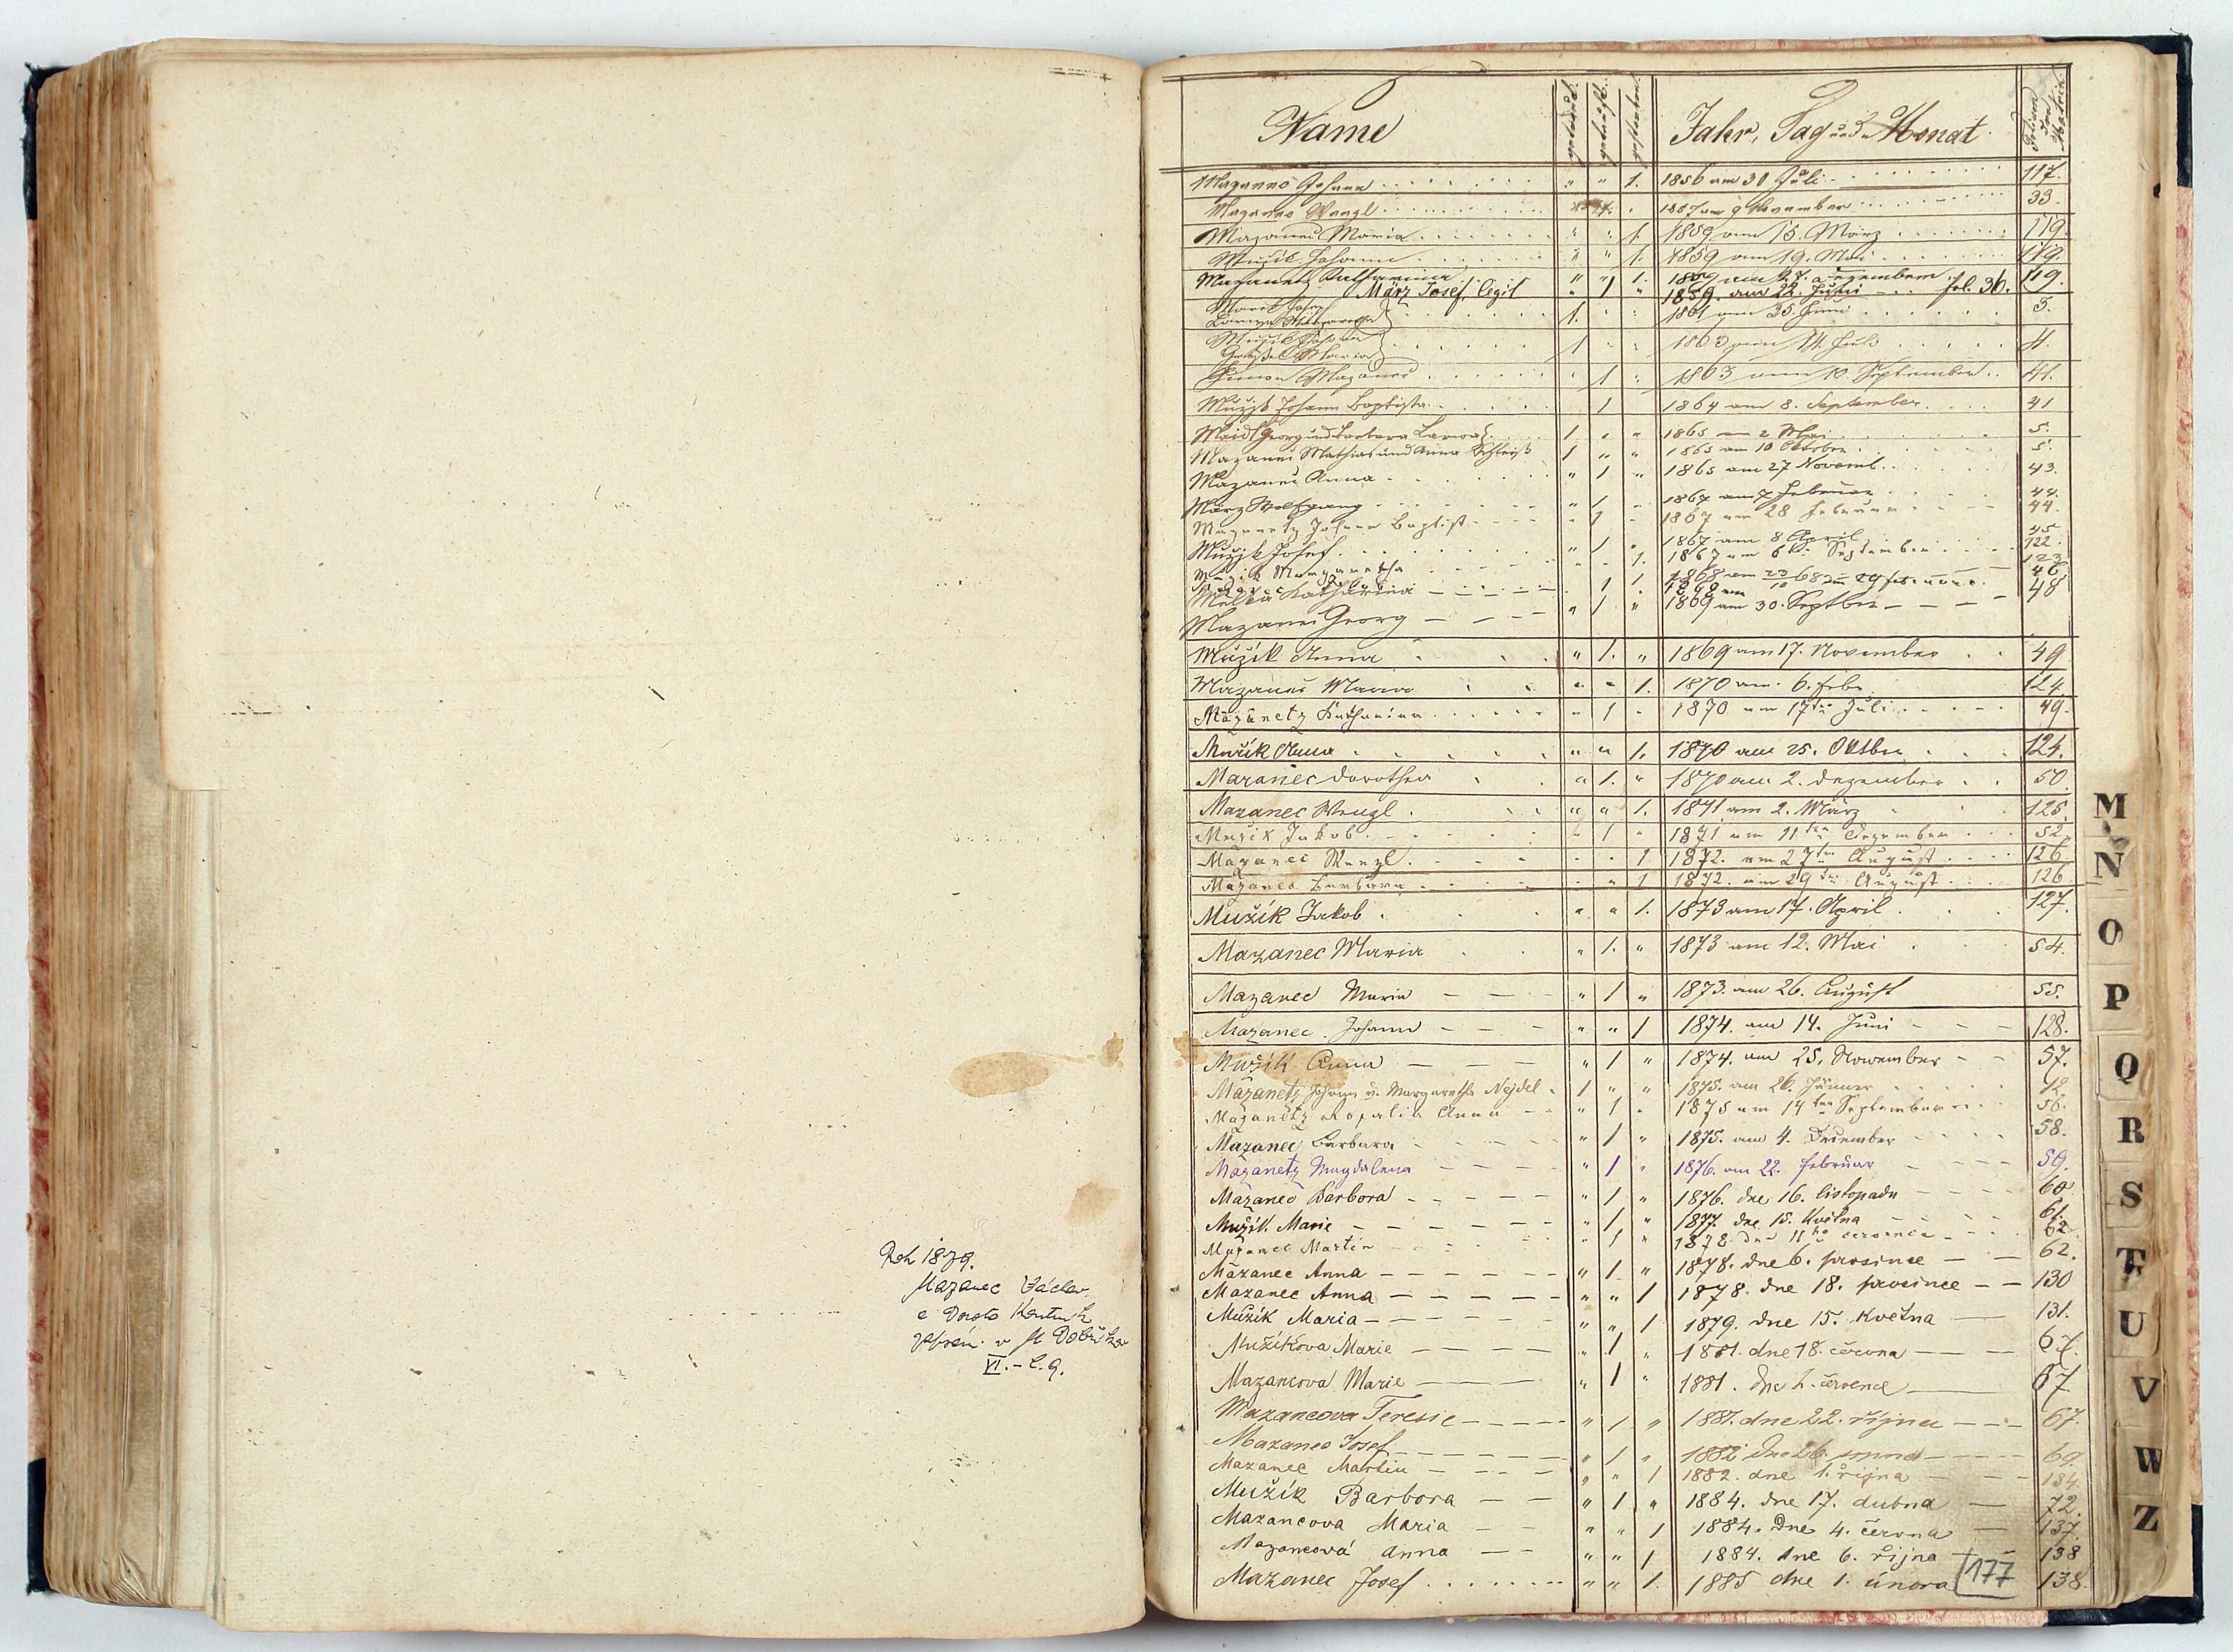 Roh 1879.
Mazanec Václav
a Dorota
VI. - L. 9.
Name
Jahr, Tag und Monat
Johann " " 1. 1856 am 30 Juli 117.
Wenzl 1857 am 9 November 33.
Mazanec Maria " " 1. 1859 am 15. März 119.
Mužik Johann " " 1. 1859 am 19. Mai 119.
Mazanetz Katharina " " 1. Dezember 119.
März Josef, legit " 1 " 1859. am 22. Juni fol. 36.
1. 1861 am 25. Juni 3.
1 1863 am 14. Juli 4.
Simon Mazanec " 1 " 1863 am 10. September 41.
Mužik Johann Baptista 1 1864 am 8. September 41
Maidl Georg und Barbara 1 " " 1865 am 2 Mai 5.
Mazanec Mathias und Anna 1 " " 1865 am 10 Oktober 5.
Mazanec Anna " 1 " 1865 am 27 Novemb. 43.
März Wolfgang " 1 " 1867 am Februar 44.
Mazanetz Johann Baptist " 1 " 1867 am 28 Februar 44.
Mužik Josef " 1 " 1867 am 8 April 45
Mužik Margaretha " " 1. 1867 am 6 September 122.
1868 123
Katharina 1 46
Mazanec Georg " 1 " 1869 am 30. Septber 48
Mužík Anna " 1. " 1869 am 17. November 49
Mazanec Maria " " 1. 1870 am 6. Febr. 124.
Mazanetz Katharina " 1 " 1870 am 17ten Juli 49.
Mužík Anna " " 1. 1870 am 25. Oktber 124.
Mazanec Dorothea " 1. " 1870 am 2. Dezember 50.
Mazanec Wenzl " " 1. 1871 am 2. März 125.
Mužik Jakob " 1 " 1871 am 11ten Dezember 52.
Mazanec Wenzl " " 1 1872. am 27ten August 126.
Mazanec Barbara " " 1 1872. am 29ten August 126
Mužík Jakob " " 1. 1873 am 17. April 127.
Mazanec Maria " 1. " 1873 am 12. Mai 54.
Mazanec Maria " 1 " 1873. am 26. August 55.
Mazanec Johann " " 1 1874. am 14. Juni 128.
Mužík Anna " 1 " 1874. am 25. November 57.
Mazanetz Johann u. Margaretha Nejdel 1 " " 1875. am 26. Jänner 12
Mazanetz Rosalia Anna " 1 " 1875 am 14ten September 58.
Mazanec Barbara " 1 " 1875. am 4. Dezember 58.
Mazanetz Magdalena " 1 " 1876. am 22. Februar 59.
Mazanec Barbora " 1 " 1876. dne 16. listopadu 60
Mužík Marie " 1 " 1877. dne 15. Května 61.
Mazanec Martin " 1 " 1878 dne 11ho července 62
Mazanec Anna " 1 " 1878. dne 6. prosince 62.
Mazanec Anna " " 1 1878. dne 18. prosince 130
Mužík Maria " " 1 1879. dne 15. Května 131.
Mužíkova Marie " 1 " 1881. dne 18. června 67.
Mazancova Marie " 1 " 1881. dne 2. července 67
Mazancova Teresie " 1 " 1881. dne 22. října 67.
Mazanec Josef " 1 " 1882 dne 26. srpna 69.
Mazanec Martin " " 1 1882. dne 1. října 134
Mužík Barbora " 1 " 1884. dne 17. dubna 72.
Mazancova Maria " " 1 1884. dne 4. června 137.
Mazancová Anna " " 1 1884. dne 6. října 138
Mazanec Josef " " 1. 1885 dne 1. února 138.
177
M
N
O
P
Q
R
S
T
U
V
W
Z